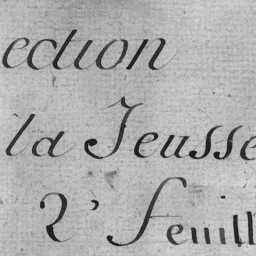 ection
la Jeusse
2e Feuill